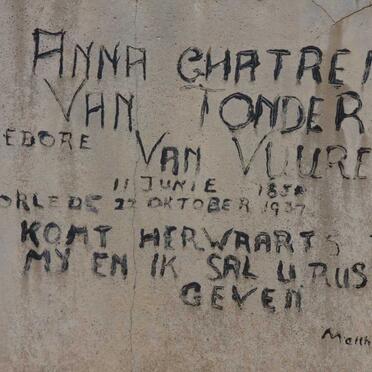 ANNA CHATRE
VAN TONDER
EDORE VAN VUURE
11 JUNIE
ORLEDE 27 OKTOBER 1937
KOMT HERWAARTS
MY EN IK SAL U RUS
GEVEN
Matth